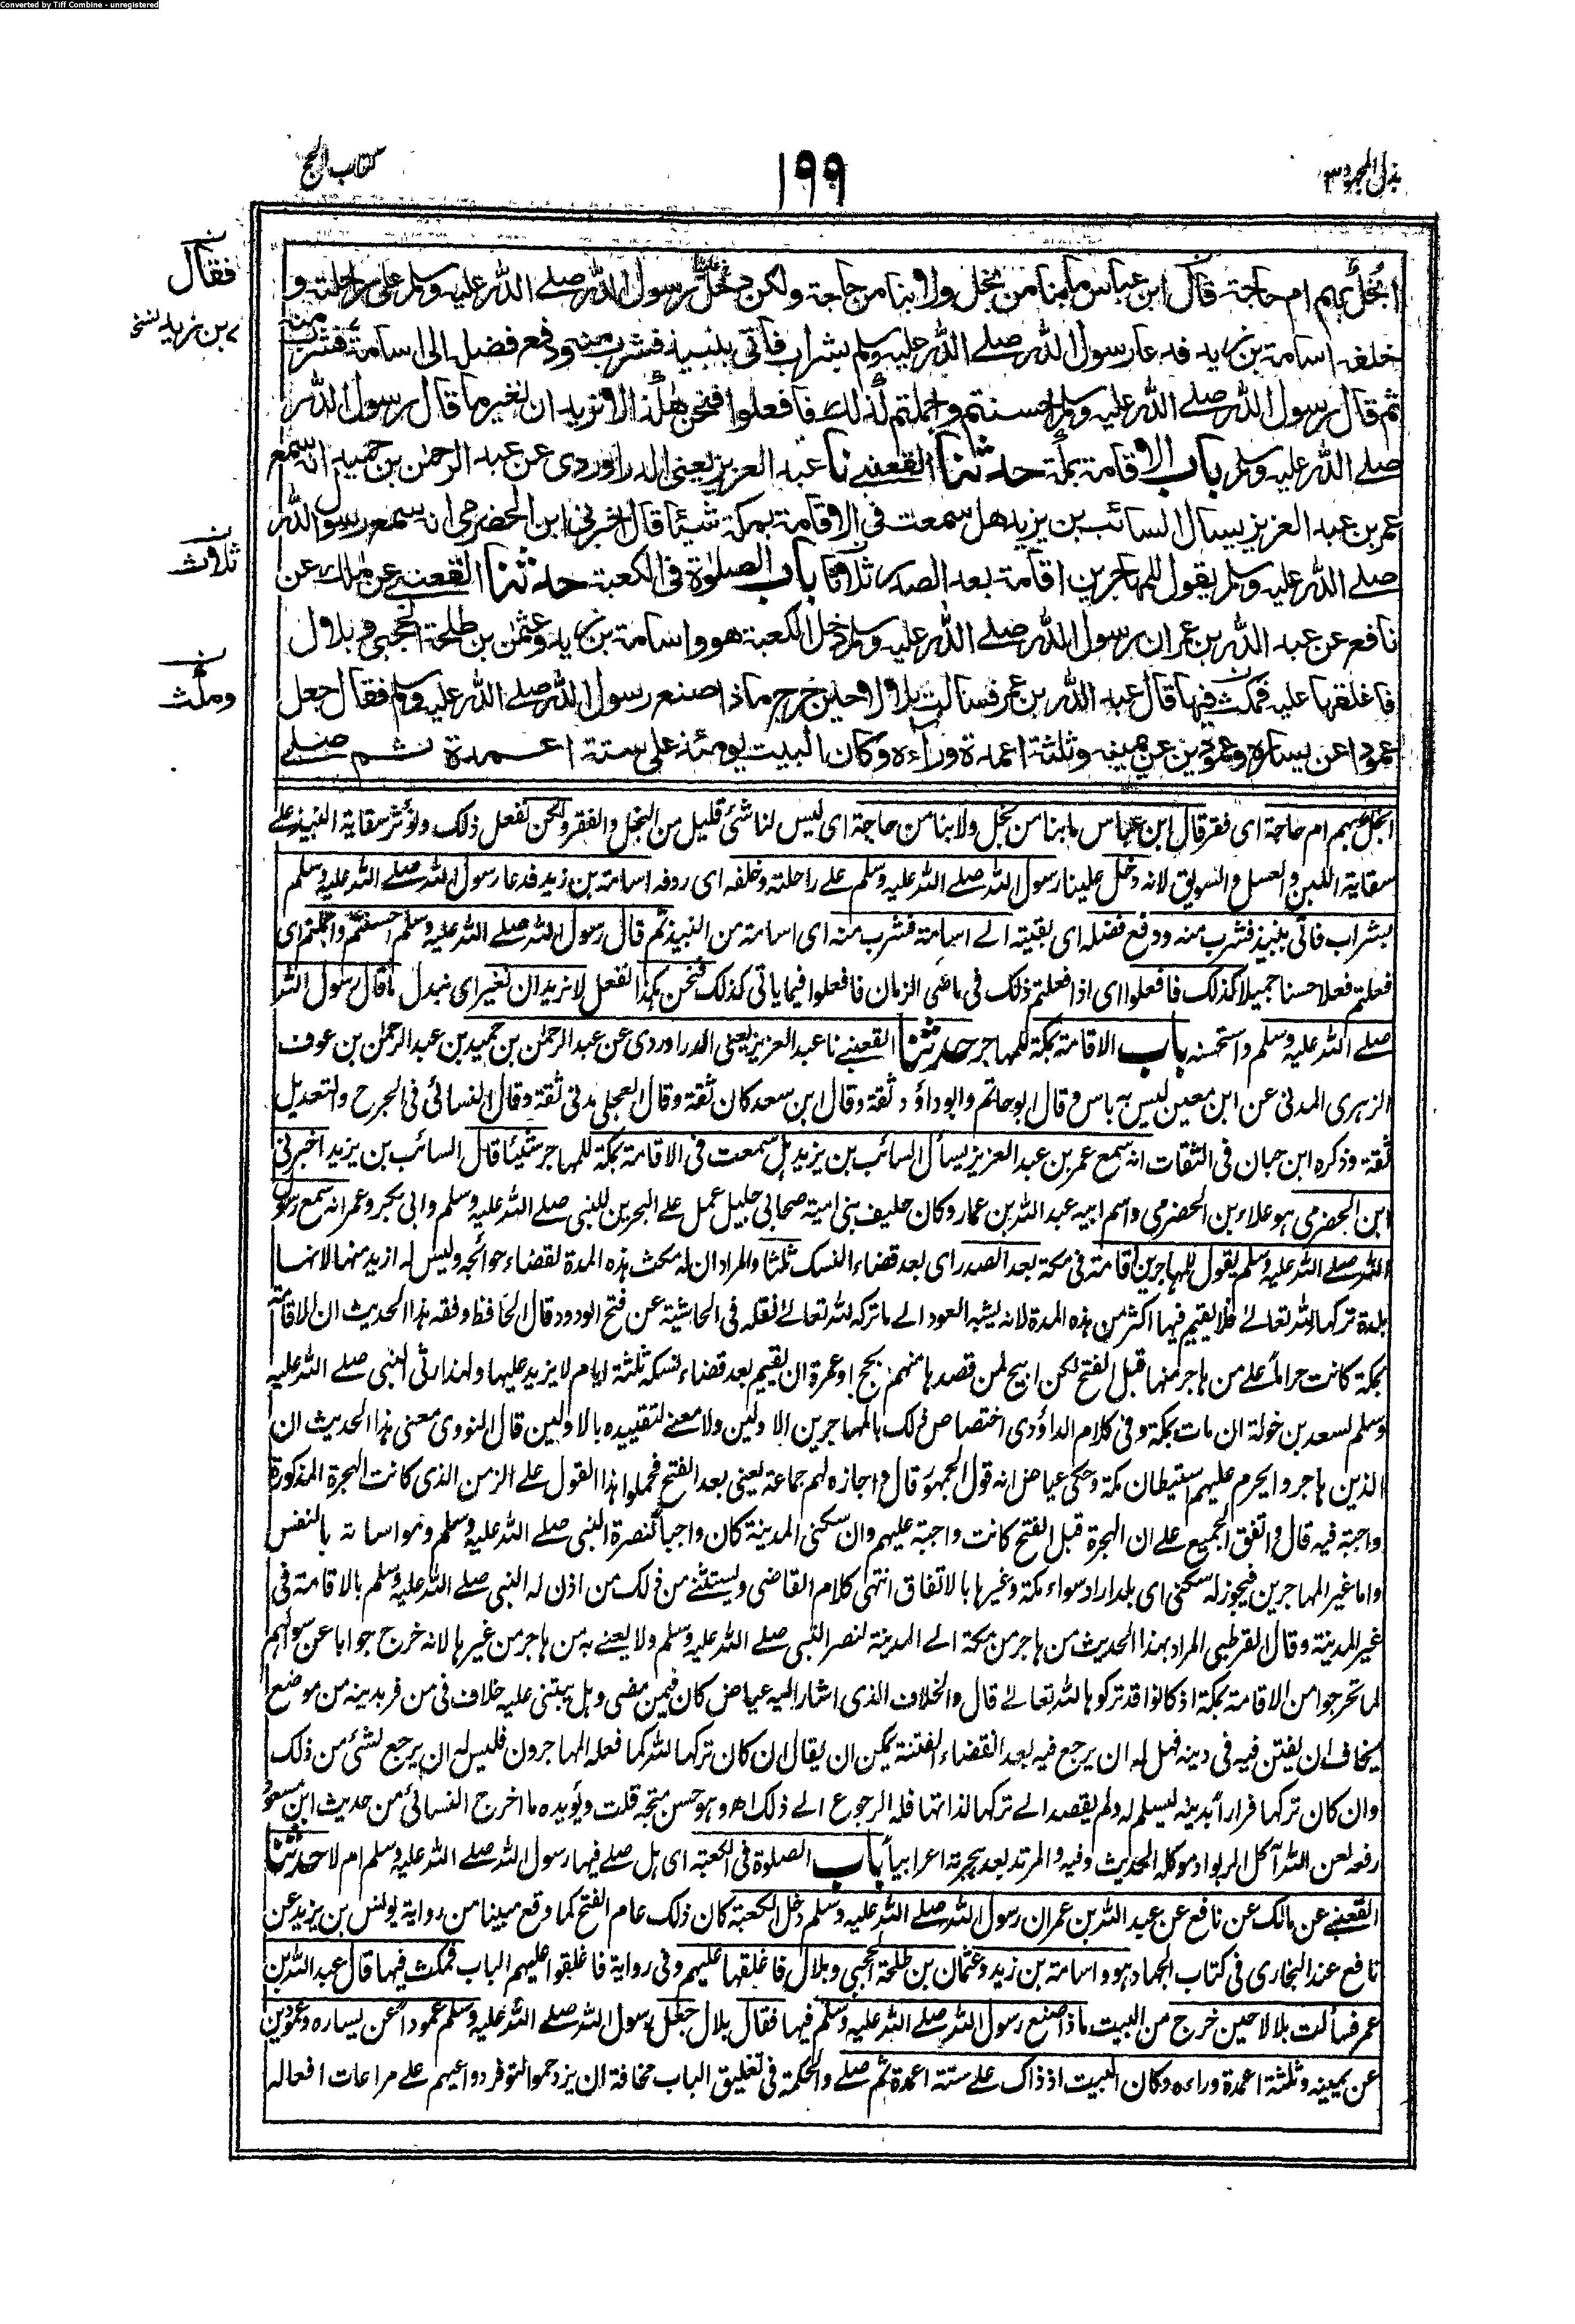 Converted by Tiff Combine - unregistered
بذل المجهود ٣
١٩٩
كتاب الحج
ابخل بهم ام حاجة قال ابن عباس ما بنا من بخل ولا بنا من حاجة ولكن دخل رسول الله صلے الله عليه وسلم على راحلته و
خلفه اسامة بن زيد فدعا رسول الله صلے الله عليه وسلم بشراب فأتي بنبيذ فشرب منه ودفع فضله الى اسامة فشرب منه
ثم قال رسول الله صلے الله عليه وسلم احسنتم واجملتم كذلك فافعلوا فنحن هكذا لا نريد ان نغير ما قال رسول الله
صلے الله عليه وسلم باب الاقامة بمكة حدثنا القعنبي نا عبد العزيز يعنى الدراوردى عن عبد الرحمن بن حميد انه سمع
عمر بن عبد العزيز يسأل السائب بن يزيد هل سمعت فى الاقامة بمكة شيئا قال اخبرنى ابن الحضرمى انه سمع رسول الله
صلے الله عليه وسلم يقول للمهاجرين اقامة بعد الصدر ثلاثا باب الصلوٰة فى الكعبة حدثنا القعنبي عن مالك عن
نافع عن عبد الله بن عمر ان رسول الله صلے الله عليه وسلم دخل الكعبة هو واسامة بن زيد وعثمن بن طلحة الحجبي وبلال
فاغلقها عليه فمكث فيها قال عبد الله بن عمر فسألت بلالا حين خرج ماذا صنع رسول الله صلے الله عليه وسلم فقال جعل
عمودا عن يساره وعمودين عن يمينه وثلثة اعمدة وراءه وكان البيت يومئذ على ستة اعمدة ثم صلے
فقال
بن زيد نسخ
ثلاث
ومكث
ابخل بهم ام حاجة اى فقر قال ابن عباس ما بنا من بخل ولا بنا من حاجة اى ليس لنا شئ قليل من البخل والفقر ولكن نفعل ذلك ونؤثر سقاية النبيذ علے
سقاية اللبن والعسل والسويق لانه دخل علينا رسول الله صلے الله عليه وسلم علے راحلته وخلفه اى ردفه اسامة بن زيد فدعا رسول الله صلے الله عليه وسلم
بشراب فاتى بنبيذ فشرب منه ودفع فضله اى بقيته الے اسامة فشرب منه اى اسامة من النبيذ ثم قال رسول الله صلے الله عليه وسلم احسنتم واجملتم اى
فعلتم فعلا حسنا جميلا كذلك فافعلوا اى اذا فعلتم ذلك فى ماضى الزمان فافعلوا فيما ياتى كذلك فنحن بهذا الفعل لا نريد ان نغير اى نبدل ما قال رسول الله
صلے الله عليه وسلم واستحسنه باب الاقامة بمكة للمهاجر حدثنا القعنبے نا عبد العزيز يعنى الدراوردى عن عبد الرحمن بن حميد بن عبد الرحمن بن عوف
الزهرى المدنى عن ابن معين ليس به باس وقال ابو حاتم وابو داؤد ثقة وقال ابن سعد كان ثقة وقال العجلى مدنى ثقة وقال النسائى فى الجرح والتعديل
ثقة وذكره ابن حبان فى الثقات انه سمع عمر بن عبد العزيز يسأل السائب بن يزيد هل سمعت فى الاقامة بمكة للمهاجر شيئا قال السائب بن يزيد اخبرنى
ابن الحضرمى هو علاء بن الحضرمى واسم ابيه عبد الله بن عمار وكان حليف بنى امية صحابى جليل عمل علے البحرين للنبى صلے الله عليه وسلم وابى بكر وعمر انه سمع رسول
الله صلے الله عليه وسلم يقول للمهاجرين اقامة فى مكة بعد الصدر اى بعد قضاء النسك ثلثا والمراد ان له مكث هذه المدة لقضاء حوائجه وليس له ازيد منها لانها
بلدة تركها لله تعالےٰ فلا يقيم فيها اكثر من هذه المدة لانه يشبه العود الے ما تركه لله تعالےٰ نقله فى الحاشية عن فتح الودود قال الحافظ وفقه هذا الحديث ان الاقامة
بمكة كانت حراماً علے من هاجر منها قبل الفتح لكن ابيح لمن قصدها منهم بحج او عمرة ان يقيم بعد قضاء نسكه ثلثة ايام لا يزيد عليها ولهذا رثى النبى صلے الله عليه
وسلم لسعد بن خولة ان مات بمكة وفى كلام الداؤدى اختصاص ذلك بالمهاجرين الاولين ولا معنے لتقييده بالاولين قال النووى معنى هذا الحديث ان
الذين هاجروا يحرم عليهم استيطان مكة وحكى عياض انه قول الجمهور قال واجازه لهم جماعة يعنى بعد الفتح فحملوا هذا القول علے الزمن الذى كانت الهجرة المذكورة
واجبة فيه قال واتفق الجميع علے ان الهجرة قبل الفتح كانت واجبة عليهم وان سكنى المدينة كان واجباً لنصرة النبى صلے الله عليه وسلم ومواساته بالنفس
واما غير المهاجرين فيجوز له سكنى اى بلد اراد سواء مكة وغيرها بالاتفاق انتهى كلام القاضى ويستثنے من ذلك من اذن له النبى صلے الله عليه وسلم بالاقامة فى
غير المدينة وقال القرطبى المراد بهذا الحديث من هاجر من مكة الے المدينة لنصر النبى صلے الله عليه وسلم ولا يعنے به من هاجر من غيرها لانه خرج جوابا عن سوالهم
لما تحرجوا من الاقامة بمكة اذ كانوا قد تركوها لله تعالےٰ قال والخلاف الذى اشار اليه عياض كان فيمن مضى وهل يبتنى عليه خلاف فى من فر بدينه من موضع
يخاف ان يفتن فيه فى دينه فهل له ان يرجع فيه بعد انقضاء الفتنة يمكن ان يقال ان كان تركها لله كما فعله المهاجرون فليس له ان يرجع لشئ من ذلك
وان كان تركها فراراً بدينه ليسلم له ولم يقصد الے تركها لذاتها فله الرجوع الے ذلك اه وهو حسن متجه قلت ويؤيده ما اخرج النسائى من حديث ابن مسعود
رفعه لعن الله آكل الربوا وموكله الحديث وفيه والمرتد بعد هجرته اعرابياً باب الصلوة فى الكعبة اى هل صلے فيها رسول الله صلے الله عليه وسلم ام لا حدثنا
القعنبے عن مالك عن نافع عن عبد الله بن عمر ان رسول الله صلے الله عليه وسلم دخل الكعبة كان ذلك عام الفتح كما وقع مبينا من رواية يونس بن يزيد عن
نافع عند البخارى فى كتاب الجهاد هو واسامة بن زيد وعثمان بن طلحة الحجبى وبلال فاغلقها عليهم وفى رواية فاغلقوا عليهم الباب فمكث فيها قال عبد الله بن
عمر فسألت بلالا حين خرج من البيت ماذا صنع رسول الله صلے الله عليه وسلم فيها فقال بلال جعل رسول الله صلے الله عليه وسلم عموداً عن يساره وعمودين
عن يمينه وثلثة اعمدة وراءه وكان البيت اذ ذاك علے ستة اعمدة ثم صلے والحكمة فى تغليق الباب مخافة ان يزدحموا لتوفر دواعيهم علے مراعات افعاله